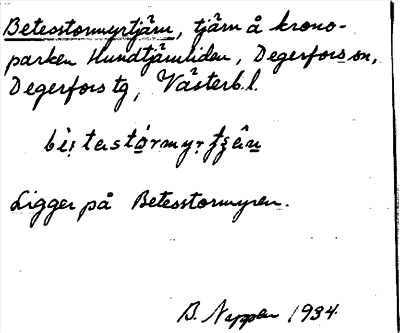 Betesstormyrtjärn, tjärn å krono-
parken Hundtjärnliden, Degerfors sn,
Degerfors tg, Västerb.l.
Ligger på Betesstormyren.
B. Nappen 1934